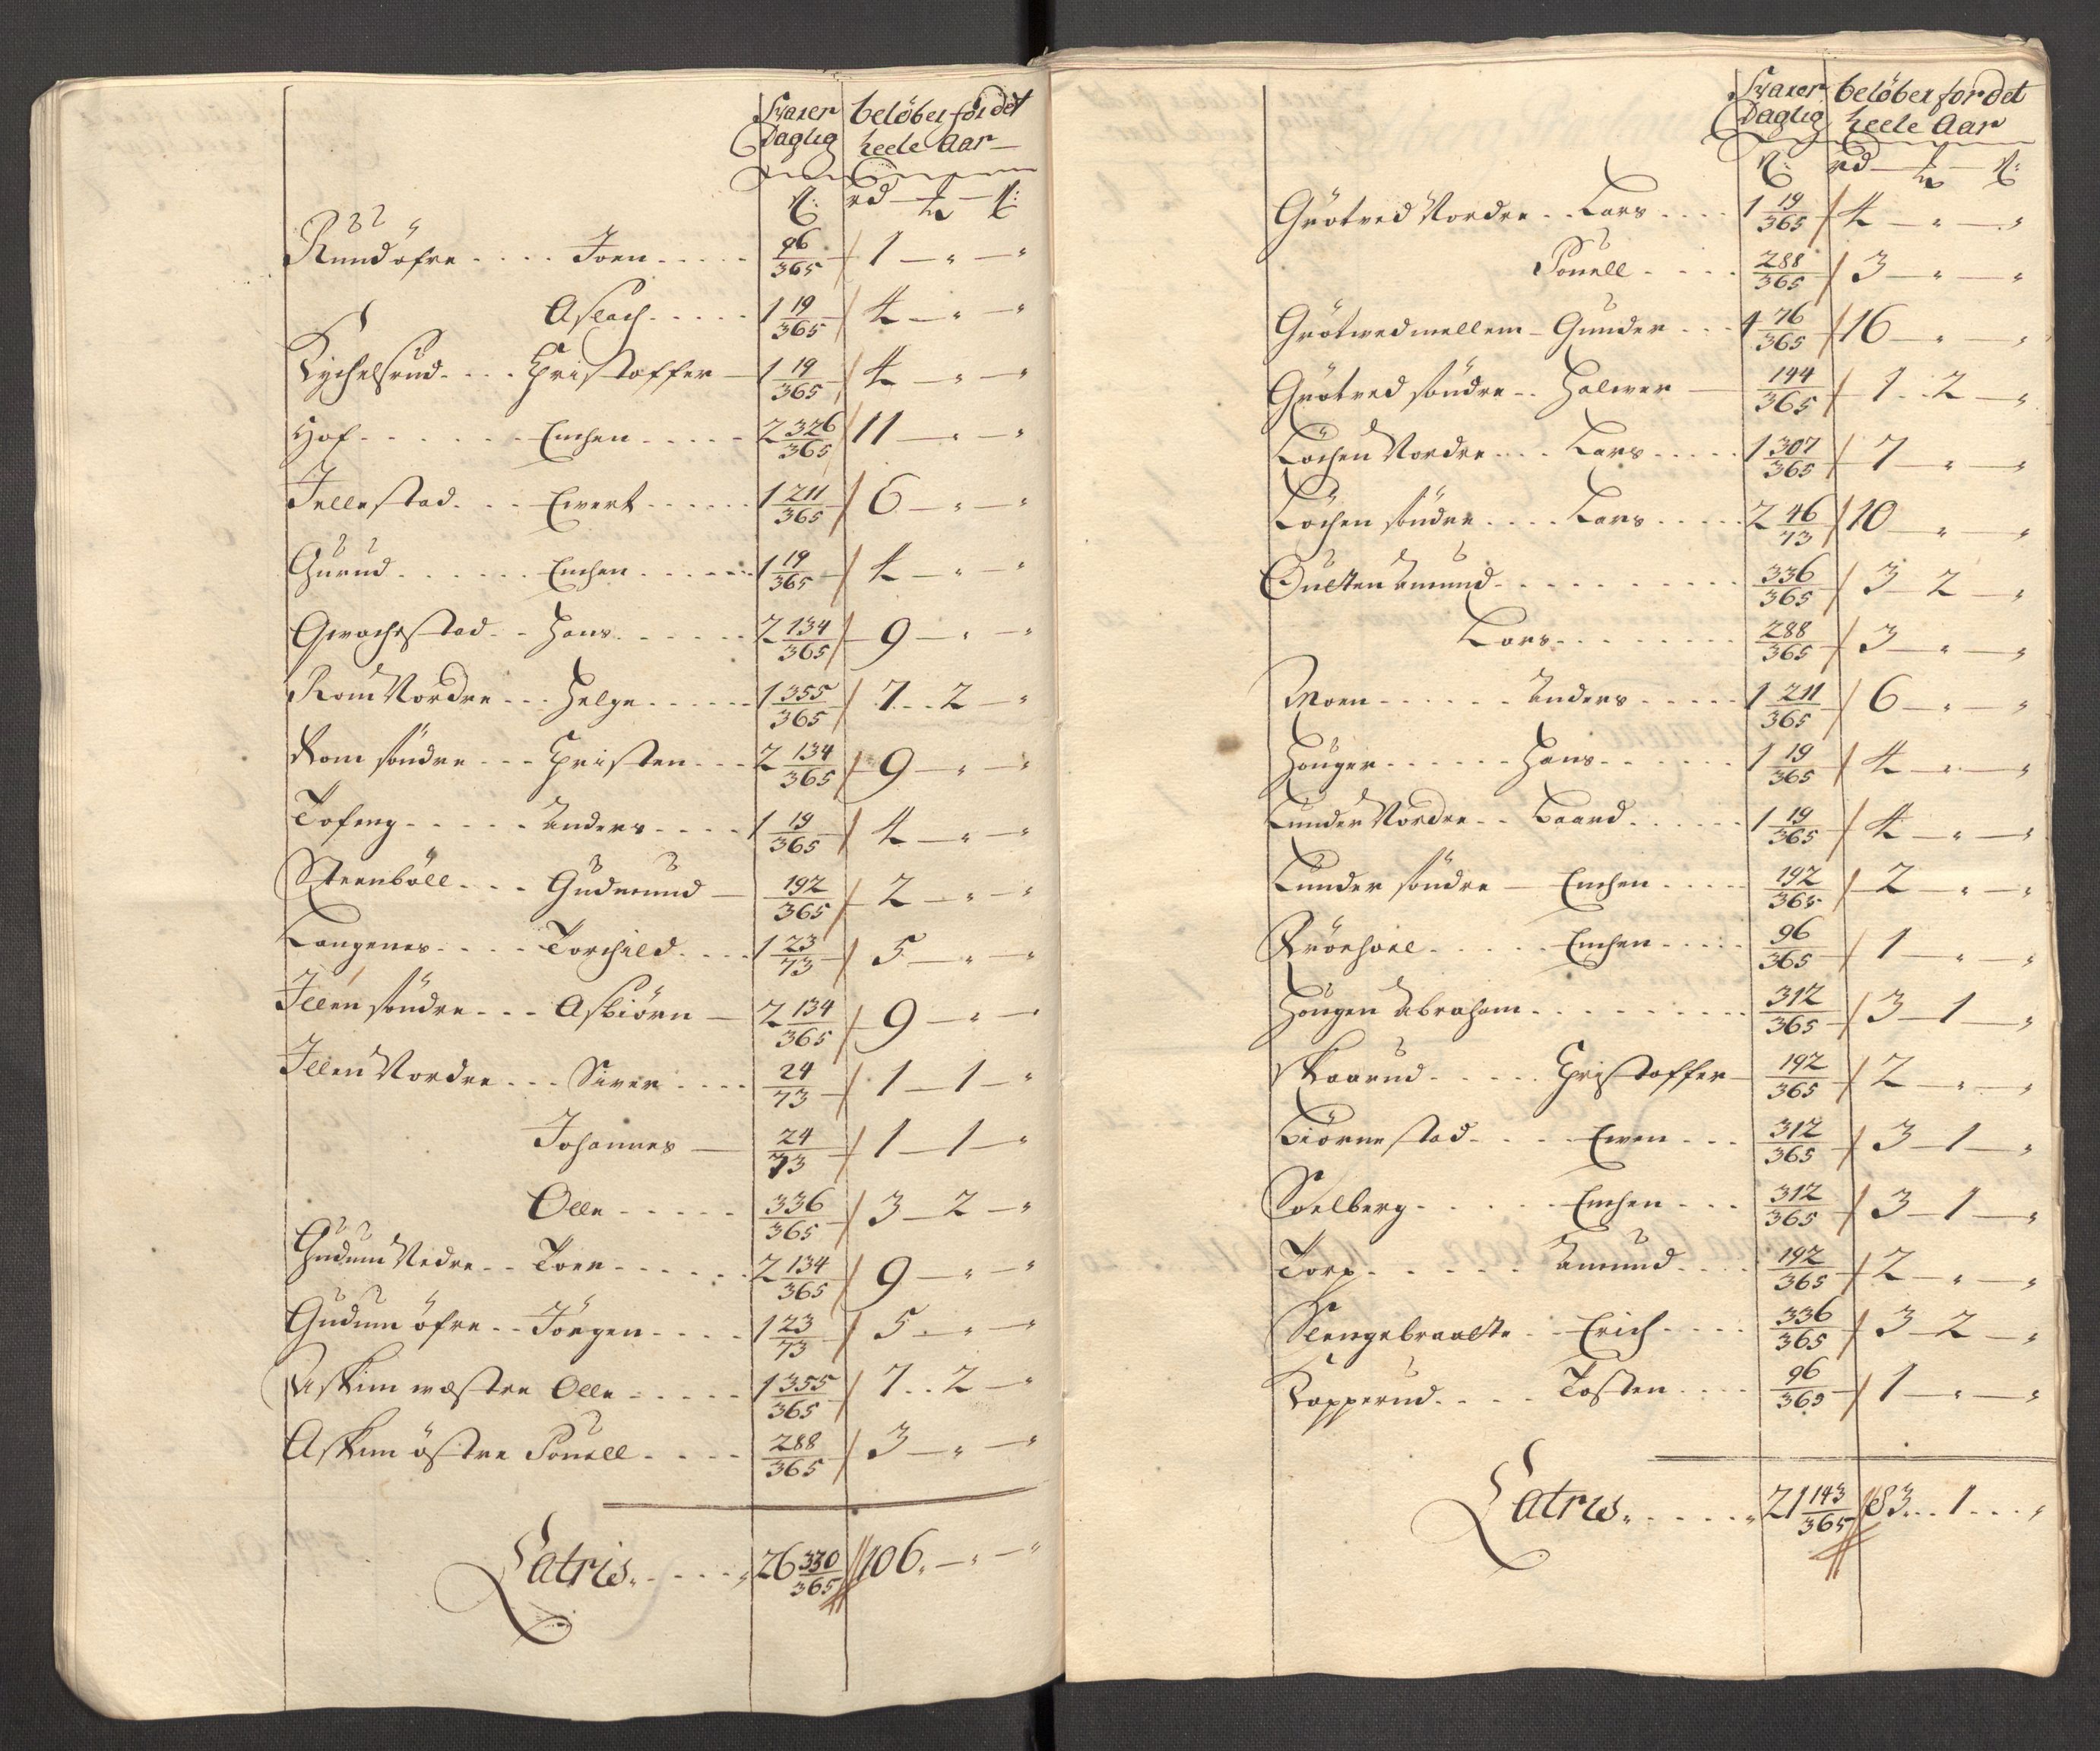 Svarer beløber for det
Daglig heele Aar
ß: rd — ß:
Rundøfre .... Joen ..... 96/365 1 — " — "
Aslach ..... 1 19/365 4 — " — "
Kychelsrud .... Christoffer — 1 19/365 4 — " — "
Hof ...... Enchen ..... 2 326/365 11 — " — "
Jellestad .... Ewert ...... 1 211/365 6 — " — "
Gurud ...... Enchen ...... 1 19/365 4 — " — "
Gwachestad .. Hans ...... 2 134/365 9 — " — "
Rom Nordre ... Helge ...... 1 355/365 7 .. 2 — "
Rom søndre ... Christen ... 2 134/365 9 — " — "
Tofeng ..... Anders .... 1 19/365 4 — " — "
Steenbøll ... Gudmund — 192/365 2 — " — "
Langenes .... Torchild .... 1 23/73 5 — " — "
Illen søndre ... Asbiørn — 2 134/365 9 — " — "
Illen Nordre ... Siver .... 24/73 1 — 1 — "
Johannes — 24/73 1 — 1 — "
Olle ..... 336/365 3 — 2 — "
Gudum Nedre .. Toer ...... 2 134/365 9 — " — "
Gudum øfre .. Jørgen .... 1 23/73 5 — " — "
Askim westre Olle ..... 1 355/365 7 .. 2 — "
Askim østre Pouell .... 288/365 3 — " — "
Latris ..... 26 330/365 106. — " — "
Svarer beløber for det
Daglig heele Aar
ß: rd — ß:
Grøtved Nordre .. Lars .... 1 19/365 4 — " — "
Pouell .... 288/365 3 — " — "
Grøtved mellem — Gunder ... 4 76/365 16 — " — "
Grøtved søndre .. Halwer — 144/365 1 .. 2 — "
Løchen Nordre ... Lars ..... 1 307/365 7 — " — "
Løchen søndre .... Lars ..... 2 46/73 10 — " — "
Oulten Amund .......... 336/365 3 — 2 — "
Lars ........ 288/365 3 — " — "
Moen ...... Anders ..... 1 211/365 6 — " — "
Houger ...... Hans ...... 1 19/365 4 — " — "
Lunder Nordre .. Baard ...... 1 19/365 4 — " — "
Lunder søndre — Enchen .... 192/365 2 — " — "
Enchen ..... 96/365 1 — " — "
Hougen Abraham ......... 312/365 3 — 1 — "
Skaarud ..... Christoffer — 192/365 2 — " — "
Biørnestad .... Ewen ... 312/365 3 — 1 — "
Soelberg ..... Enchen ... 312/365 3 — 1 — "
Torp ...... Amund .... 192/365 2 — " — "
Slengebraatte .. Erich .... 336/365 3 — 2 — "
Kopperud .... Tosten .... 96/365 1 — " — "
Latris ..... 21 143/365 83 ... 1 ... "